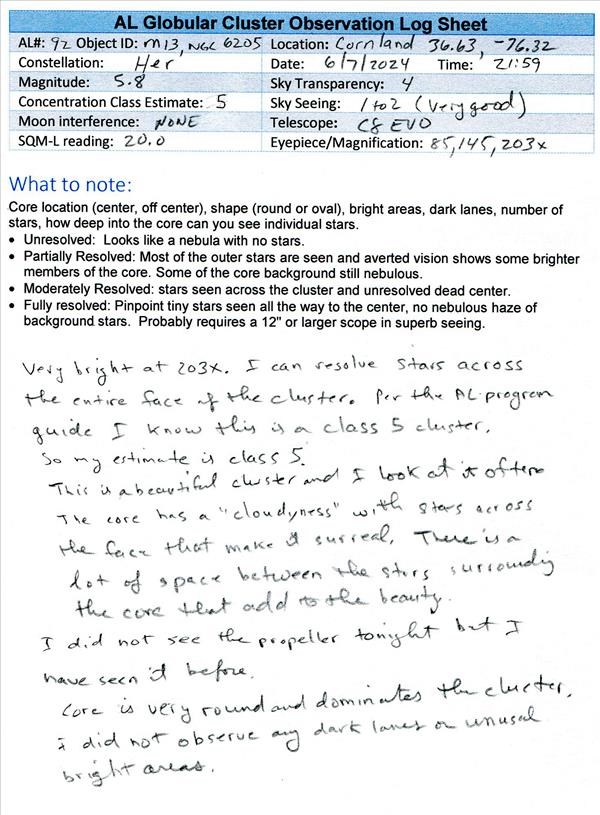 AL Globular Cluster Observation Log Sheet
AL#: 92 Object ID: M13, NGC 6205 Location: Cornland 36.63, -76.32
Constellation: Her Date: 6/7/2024 Time: 21:59
Magnitude: 5.8 Sky Transparency: 4
Concentration Class Estimate: 5 Sky Seeing: 1 to 2 (Very good)
Moon interference: NONE Telescope: C8 EVO
SQM-L reading: 20.0 Eyepiece/Magnification: 85, 145, 203x
What to note:
Core location (center, off center), shape (round or oval), bright areas, dark lanes, number of
stars, how deep into the core can you see individual stars.
• Unresolved: Looks like a nebula with no stars.
• Partially Resolved: Most of the outer stars are seen and averted vision shows some brighter
members of the core. Some of the core background still nebulous.
• Moderately Resolved: stars seen across the cluster and unresolved dead center.
• Fully resolved: Pinpoint tiny stars seen all the way to the center, no nebulous haze of
background stars. Probably requires a 12" or larger scope in superb seeing.
Very bright at 203x. I can resolve stars across
the entire face of the cluster. Per the AL program
guide I know this is a class 5 cluster.
So my estimate is class 5.
This is a beautiful cluster and I look at it often
The core has a "cloudyness" with stars across
the face that make it surreal. There is a
lot of space between the stars surrounding
the core that add to the beauty.
I did not see the propeller tonight but I
have seen it before.
Core is very round and dominates the cluster.
I did not observe any dark lanes or unusal
bright areas.